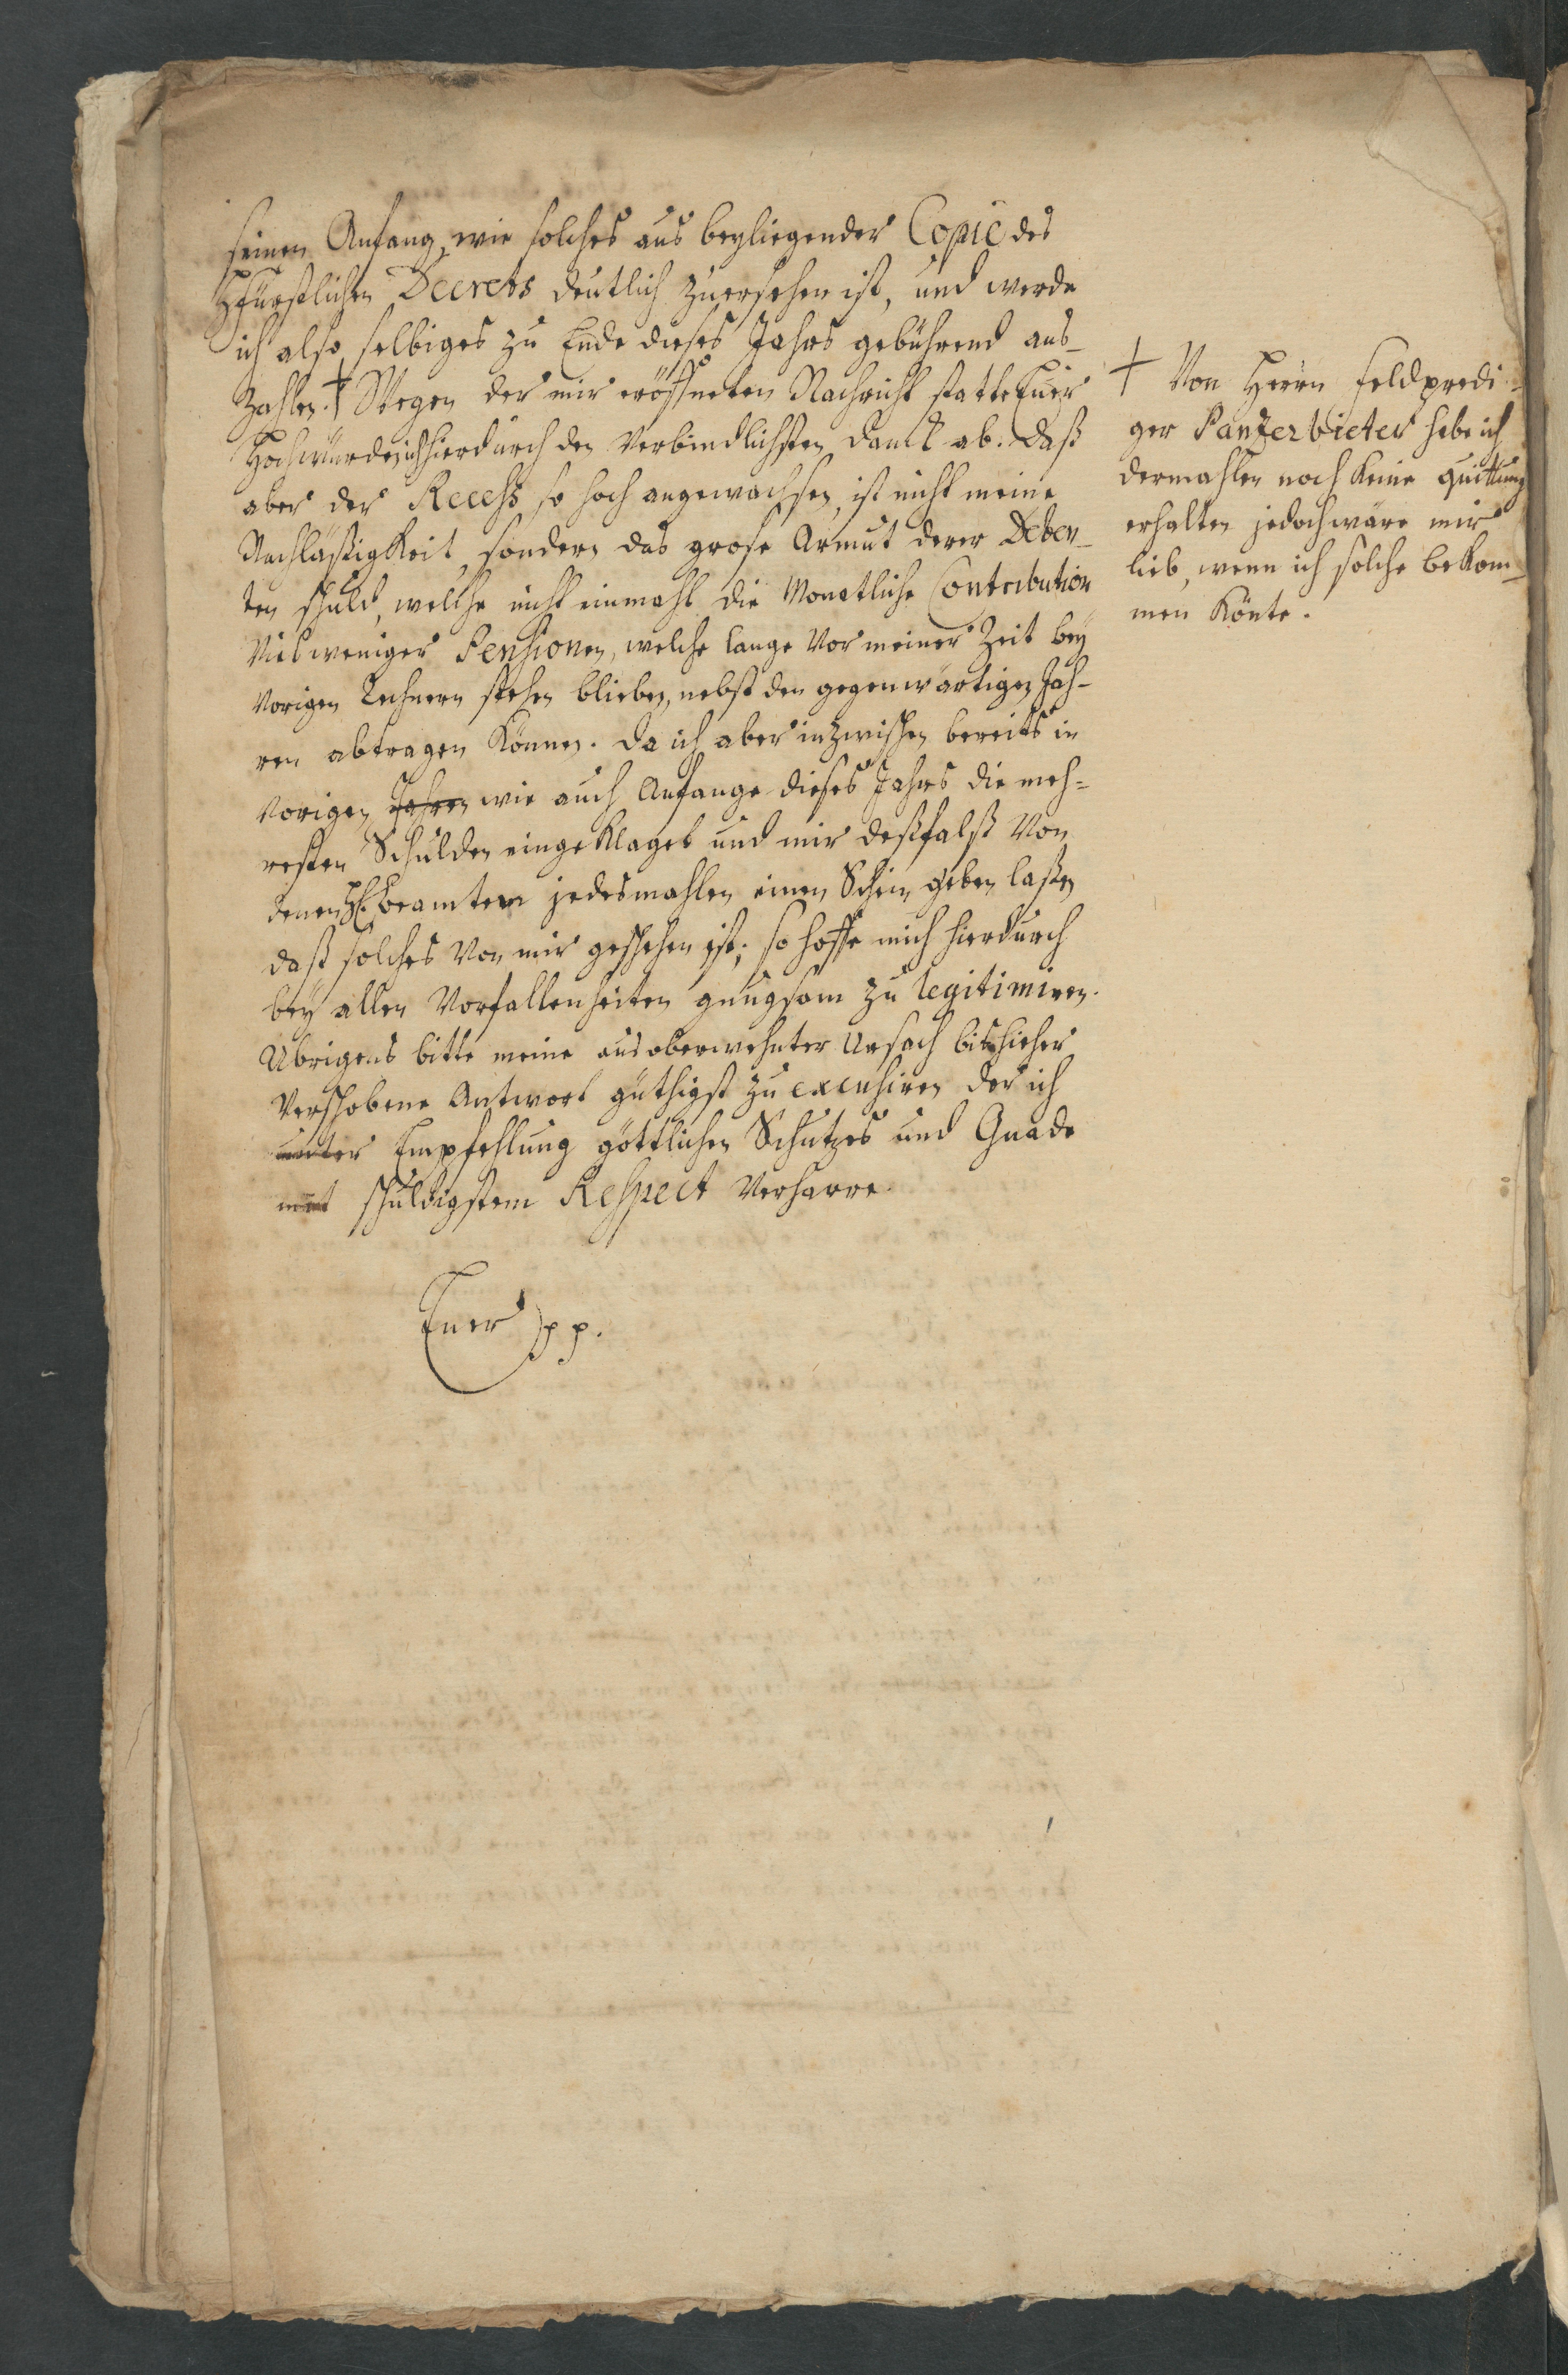 seinen Anfang, wie solches aus beyliegender Copie des
Hfürstlichen Decrets deutlich zuersehen ist, und werde
ich also selbiges zu Ende dieses Jahrs gebührend aus-
zahlen. † Wegen der mir eröffneten Nachricht statte Euer
Hochwürden ich hierdurch den Verbindlichsten Danck ab. Daß
aber der Recess so hoch angewachsen, ist nicht meine
Nachläßigkeit, sondern das grose Armut derer Deben-
ten schuld, welche nicht einmahl die Monatliche Contribution
Vielweniger Pensionen, welche lange Vor meiner Zeit bey
Vorigen Rechnern stehen blieben, nebst den gegenwärtigen Jah-
ren abtragen Können. Da ich aber inzwischen bereits in
Vorigen Jahren wie auch Anfange dieses Jahrs die meh-
resten Schulden eingeklaget und mir deßfalß Von
denen H. Beamten jedesmahlen einen Schein geben laßen
daß solches Von mir geschehen ist; so hoffe mich hierdurch
bey allen Vorfallenheiten gnugsam zu legitimiren.
Übrigens bitte meine aus oberwehnter Ursach bishieher
Verschobene Antwort gütigst zu excusiren der ich
unter Empfehlung göttlichen Schutzes und Gnade
mit schuldigstem Respect Verharre.
Euer pp.
† Von Herrn Feldpredi-
ger Panzerbieter habe ich
dermahlen noch keine quittung
erhalten jedoch wäre mir
lieb, wenn ich solche bekom-
men Könte.